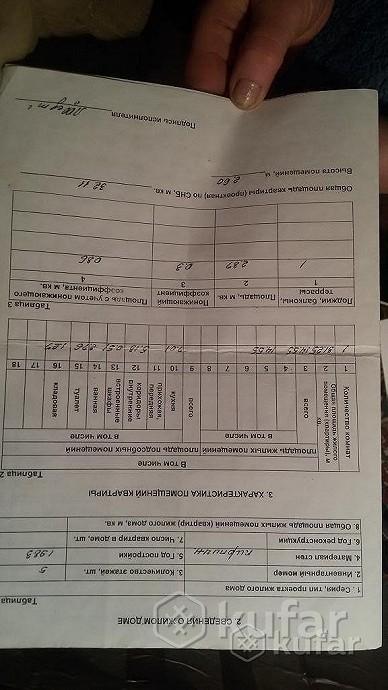 2. СВЕДЕНИЯ О ЖИЛОМ ДОМЕ
Таблица
1. Серия, тип проекта жилого дома
2. Инвентарный номер
3. Количество этажей, шт. 5
4. Материал стен кирпичн
5. Год постройки 1983
6. Год реконструкции
7. Число квартир в доме, шт.
8. Общая площадь жилых помещений (квартир) жилого дома, м кв.
3. ХАРАКТЕРИСТИКА ПОМЕЩЕНИЙ КВАРТИРЫ
Таблица 2
Количество комнат
Общая площадь жилого помещения (квартиры), м кв.
В том числе
площадь жилых помещений
площадь подсобных помещений
всего
В том числе
всего
В том числе
кухня
прихожая, передняя
коридоры внутренние
встроенные шкафы
ванная
туалет
кладовая
1 2 3 4 5 6 7 8 9 10 11 12 13 14 15 16 17 18
1 31.25 14.55 14.55
Таблица 3
Лоджии, балконы, террасы
Площадь, м кв.
Понижающий коэффициент
Площадь с учетом понижающего коэффициента, м кв.
1 2 3 4
1 2.87 0.3 0.86
Общая площадь квартиры (проектная) по СНБ, м кв. 32.11
Высота помещений, м 2.60
Подпись исполнителя
kufar
kufar